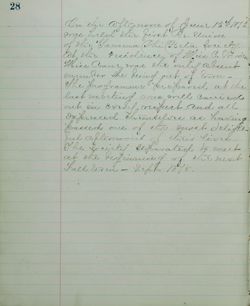 28
On the afternoon of June 1st
was held the first
of the Gamma Phi Beta Society
at the residence of Miss
Miss was the only absent
member she being out of town.
The programme prepared at the
last meeting was well carried
out in every respect and all
expressed themselves as having
passed one of the most delight-
ful afternoons of their lives.
The society separated to meet
at the beginning of the next
Fall term - Sept.